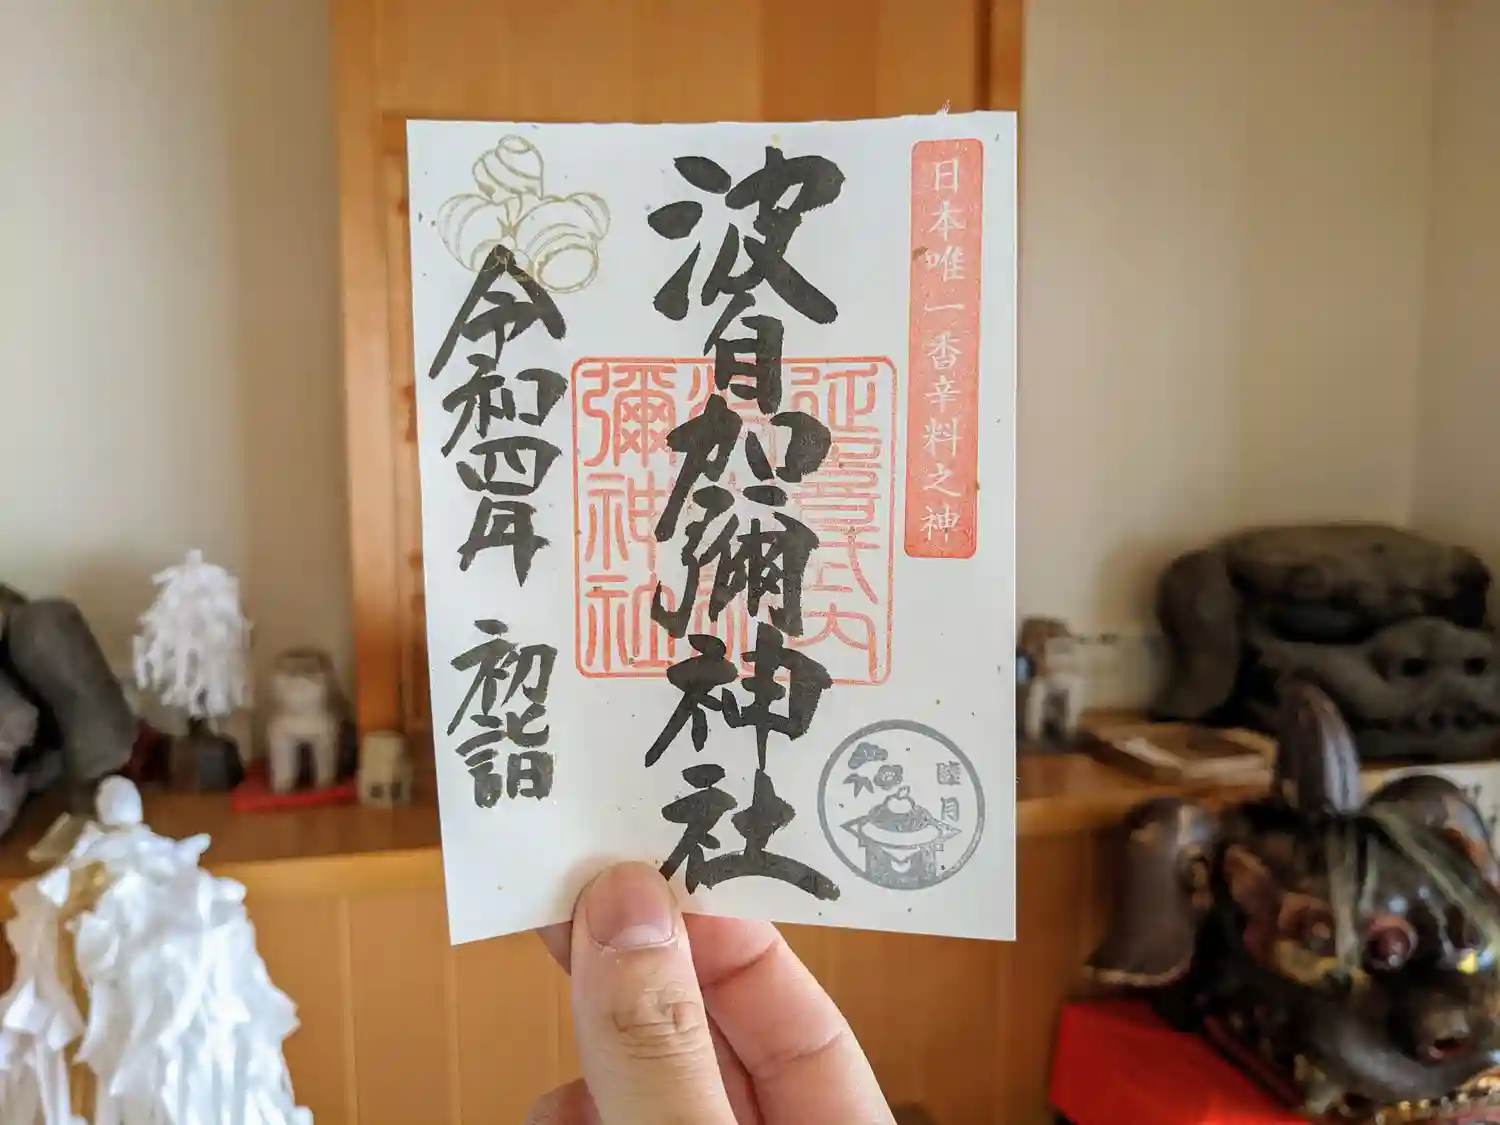 日本唯一香辛料之神
波自加彌神社
延喜式内
彌神社
令和四年 初詣
睦月